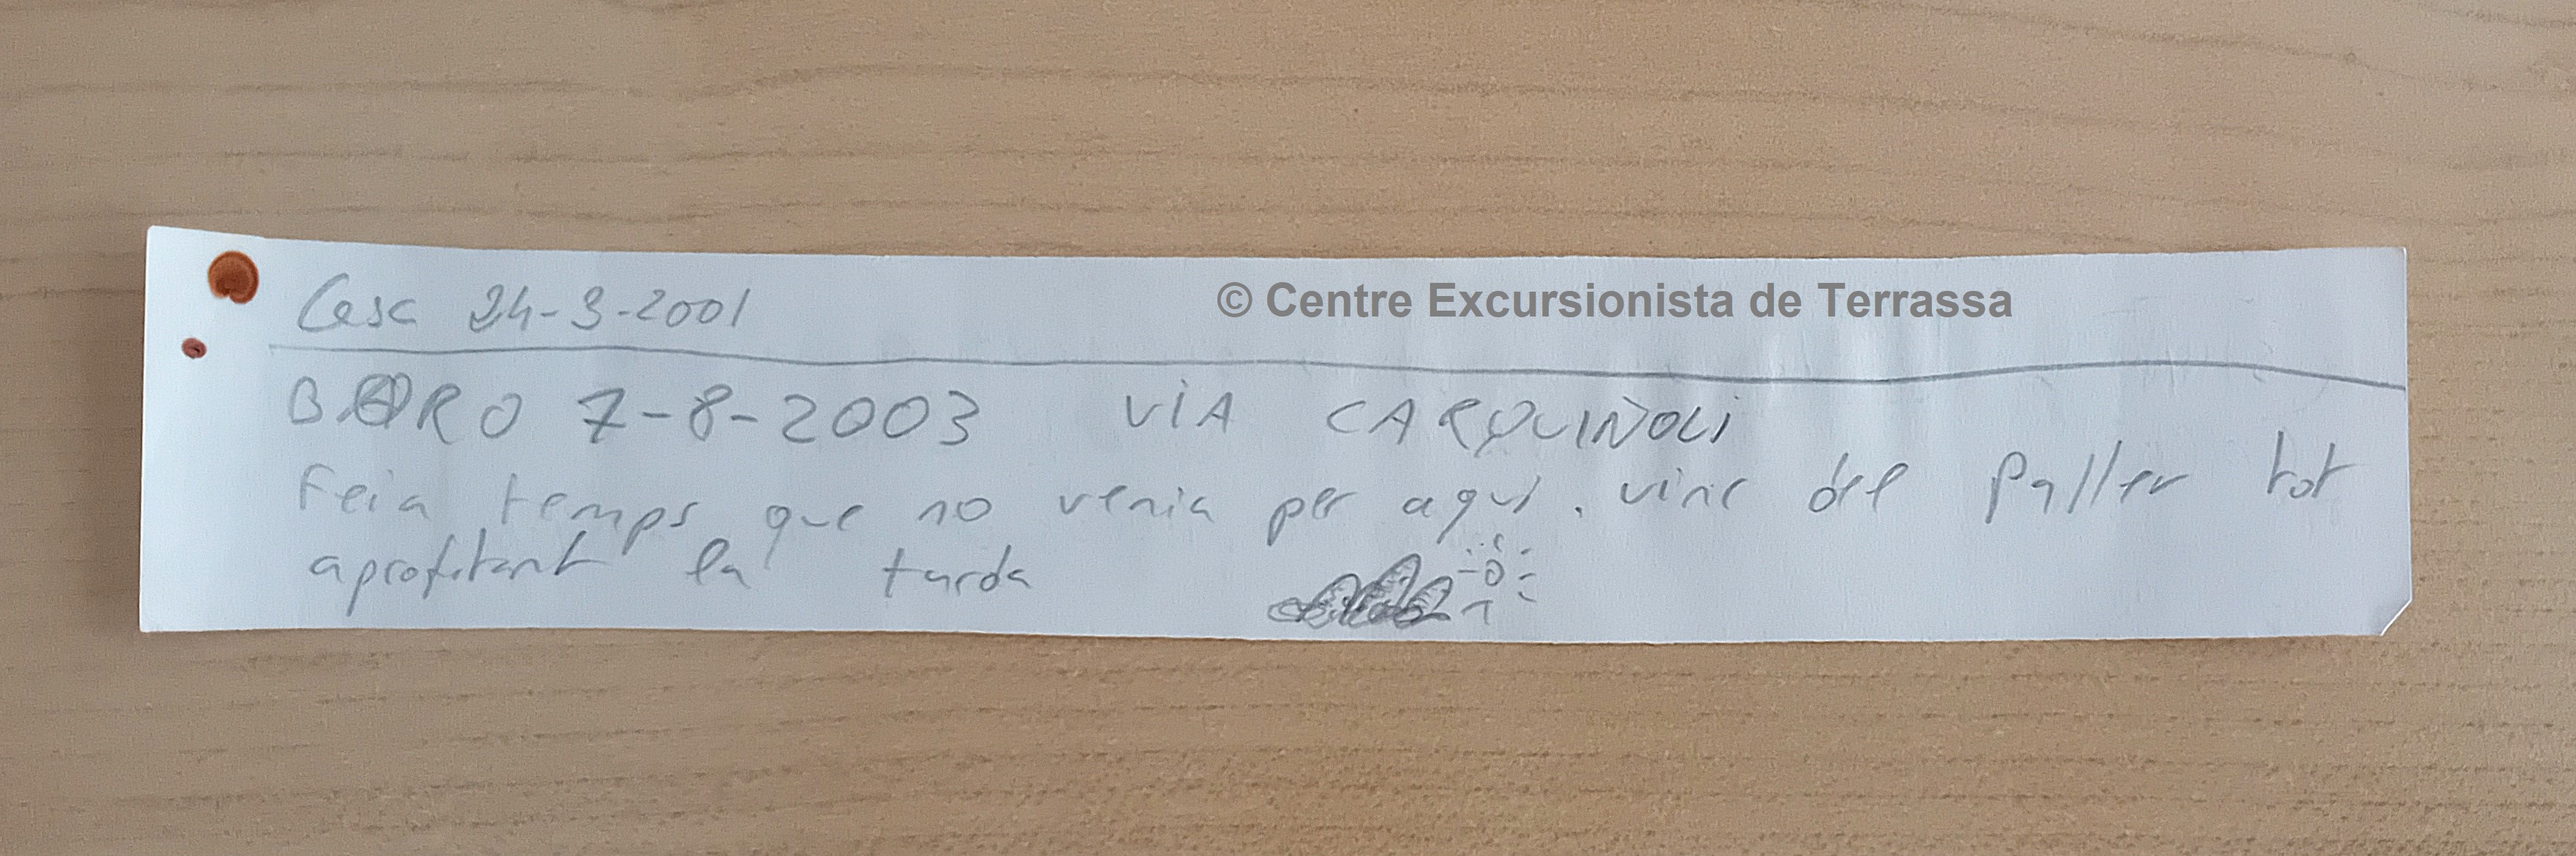 © Centre Excursionista de Terrassa
Cesc 24-3-2001
BORO 7-8-2003 VIA CARQUINOLI
Feia temps que no venia per aquí. vinc del Paller tot
aprofitant la tarda